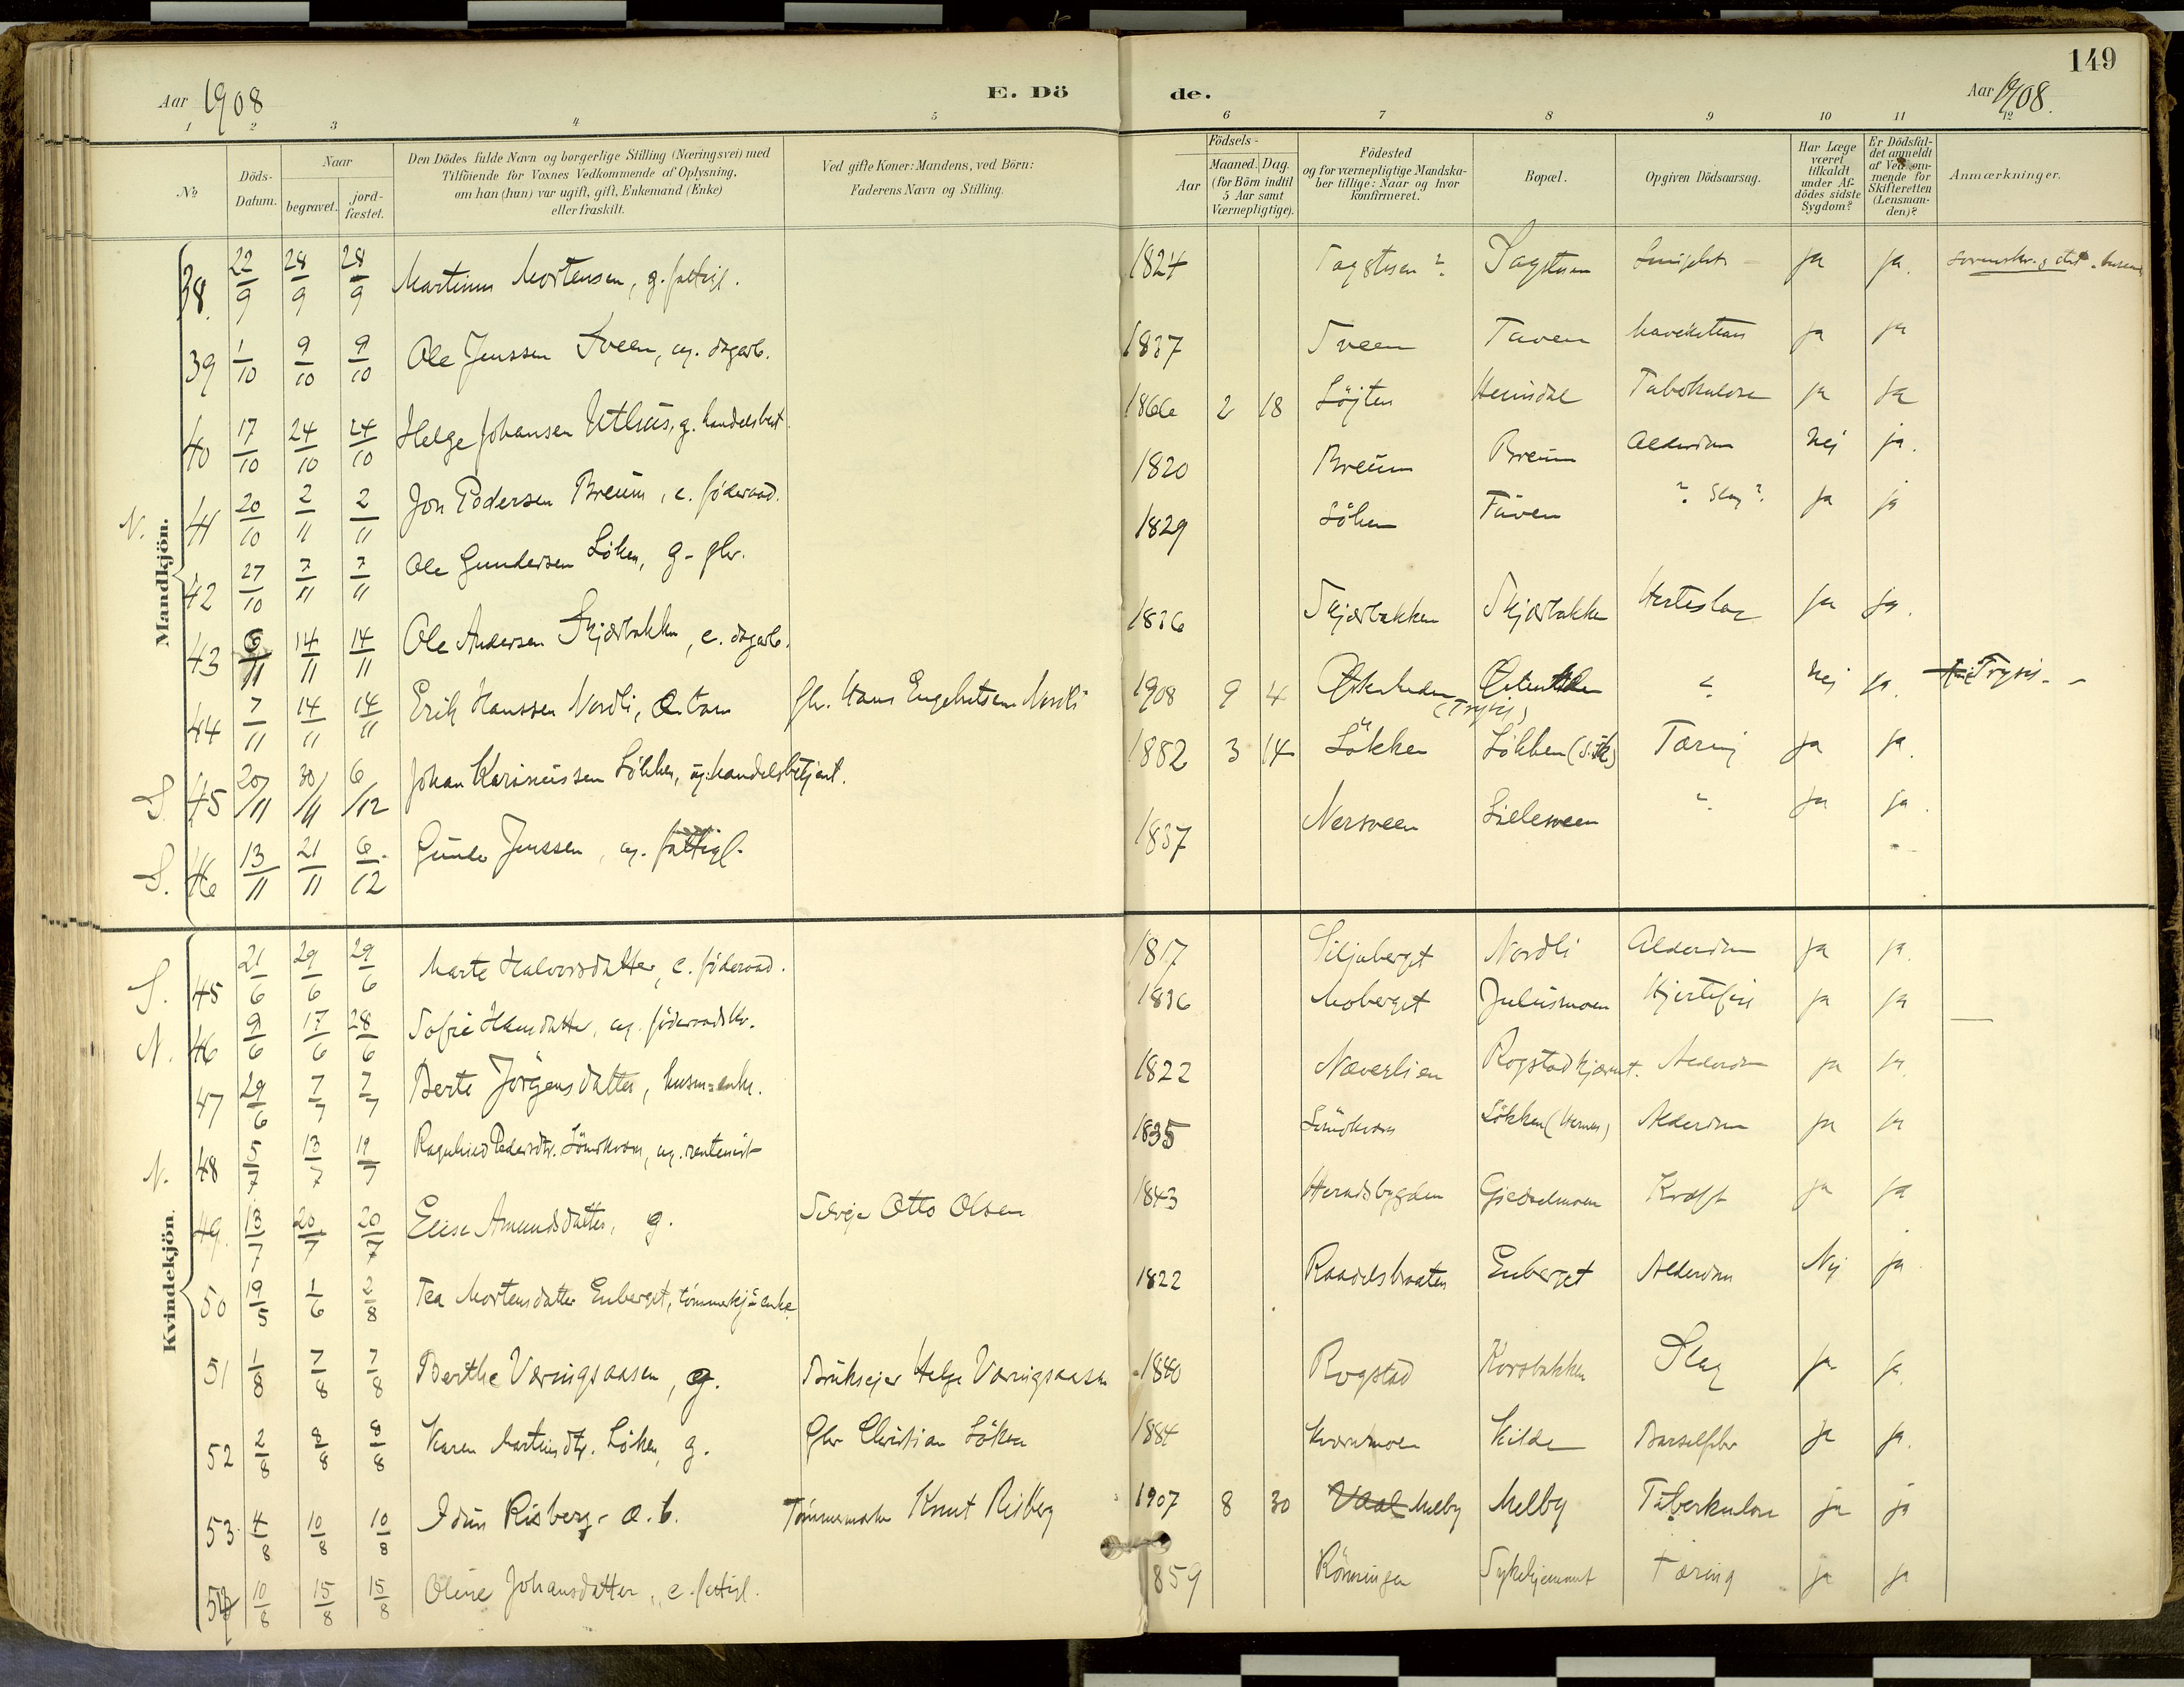 149
Aar 1908
E. Dö
de.
Aar 1908.
1 2 3 4 5 6 7 8 9 10 11 12
No
Döds-Datum.
Naar
begravet.
jord-fæstet.
Den Dödes fulde Navn og borgerlige Stilling (Næringsvei) med
Tilföiende for Voxnes Vedkommende af Oplysning,
om han (hun) var ugift, gift, Enkemand (Enke)
eller fraskilt.
Ved gifte Koner: Mandens, ved Börn:
Faderens Navn og Stilling.
Födsels-
Aar
Maaned. Dag.
(for Börn indtil
5 Aar samt
Værnepligtige).
Födested
og for værnepligtige Mandska-
ber tillige: Naar og hvor
konfirmeret.
Bopæl.
Opgiven Dödsaarsag.
Har Læge
været
tilkaldt
under Af-
dödes sidste
Sygdom?
Er Dödsfal-
det anmeldt
af Vedkom-
mende for
Skifteretten
(Lensman-
den)?
Anmærkninger.
Mandkjön.
38. 22/9 28/9 28/9 Martinus Mortensen, g. fattigl. 1824 Sagstuen ja ja.
39 1/10 9/10 9/10 Ole Jenssen Sveen, ug. dagarb. 1837 Sveen ja ja
40 17/10 24/10 24/10 Helge Johansen Uthus, g. handelsbest. 1866 2 18 Löjten Tuberkulose ja ja
N. 41 20/10 2/11 2/11 Jon Pedersen Breum, e. föderaad. 1820 Breum Breum Alderdom Nej ja.
42 27/10 7/11 7/11 Ole Gundersen Löken, g. gbr. 1829 Löken ? Slag? ja ja
43 6/11 14/11 14/11 Ole Andersen Skjærbakken, e. dagarb. 1836 Skjærbakken Skjærbakken ja ja.
44 7/11 14/11 14/11 Erik Hanssen Nordli, gbr. Hans Engebretsen Nordli 1908 9 4 (Trysil) ? Nej ja. Trysil
S. 45 20/11 30/11 6/12 Johan Karinussen Lökken, ug. handelsbetjent. 1882 3 14 Lökken Lökken Tæring ja ja.
S. 46 13/11 21/11 6/12 Jenssen, ug. fattigl. 1837 Nersveen Lillesveen ? ja ja.
Kvindekjön.
S. 45 21/6 29/6 29/6 Marte Halvorsdatter, e. föderaad. 1817 Siljuberget Nordli Alderdom ja ja.
N. 46 9/6 17/6 28/6 Sofie Hansdatter, ug. föderaadskv. 1836 Moberget Juliusmoen Hjertefeil ja ja
47 29/6 7/7 7/7 Berte Jörgensdatter, husm=enke. 1822 Næverlien Rogstadkjærnet. Alderdom ja ja.
N. 48 5/7 13/7 19/7 Ragnhild Pedersdtr. ug. rentenist 1835 Lökken Alderdom ja ja
49. 13/7 20/7 20/7 Elise Amundsdatter, g. Otto Olsen 1843 Heradsbygden Kræft ja ja
50 19/5 1/6 2/8 Tea Mortensdatter Enberget, 1822 Raadelsbraaten Enberget Alderdom Nej ja
51 1/8 7/8 7/8 Berthe Væringsaasen, g. Bruksejer Helge Væringsaasen 1840 Rogstad Korsbakken Slag ja ja.
52 2/8 8/8 8/8 Karen Martinsdtr. Löken, g. Gbr Christian Löken 1884 Kværnmoen Kilde Barselfeber ja ja.
53. 4/8 10/8 10/8 Idun Risberg. Tömmermaaler Knut Risberg 1907 8 30 Melby Melby Tuberkulose ja ja
54 10/8 15/8 15/8 Oline Johansdatter, e. fattigl. 1859 Rönningen Sykehjemmet Tæring ja ja